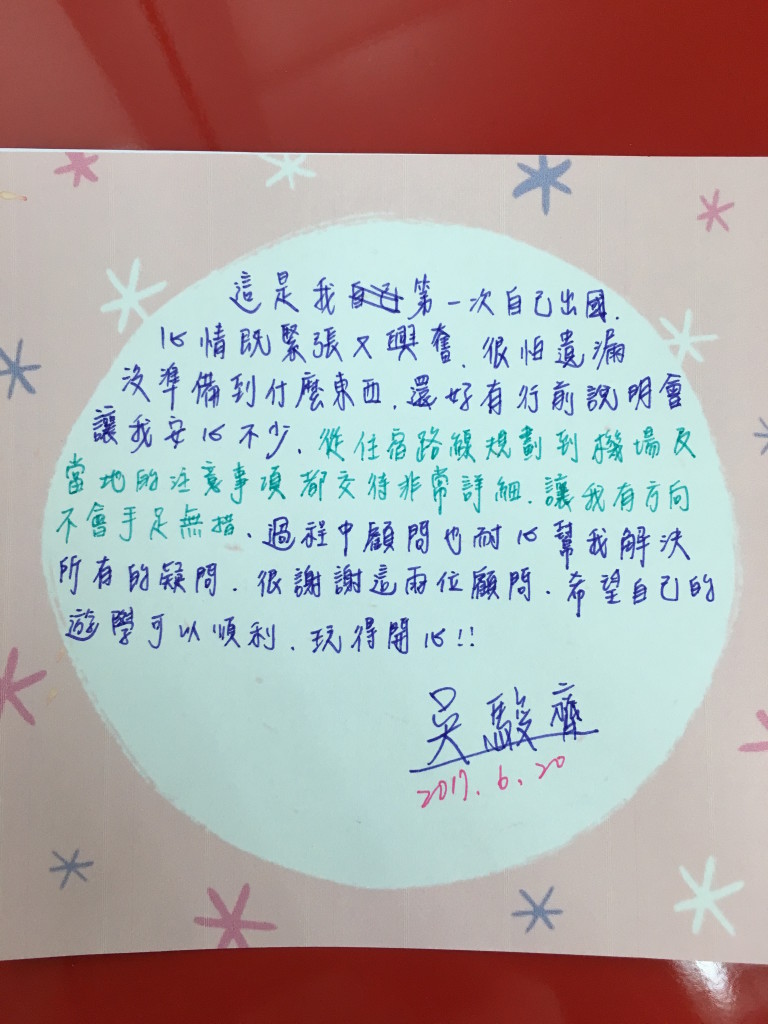 這是我第一次自己出國.
心情既緊張又興奮.很怕遺漏
沒準備到什麼東西.還好有行前說明會
讓我安心不少.從住宿路線規劃到機場及
當地的注意事項都交待非常詳細.讓我有方向
不會手足無措.過程中顧問也耐心幫我解決
所有的疑問.很謝謝這兩位顧問.希望自己的
遊學可以順利.玩得開心!!
吳駿齊
2017.6.20